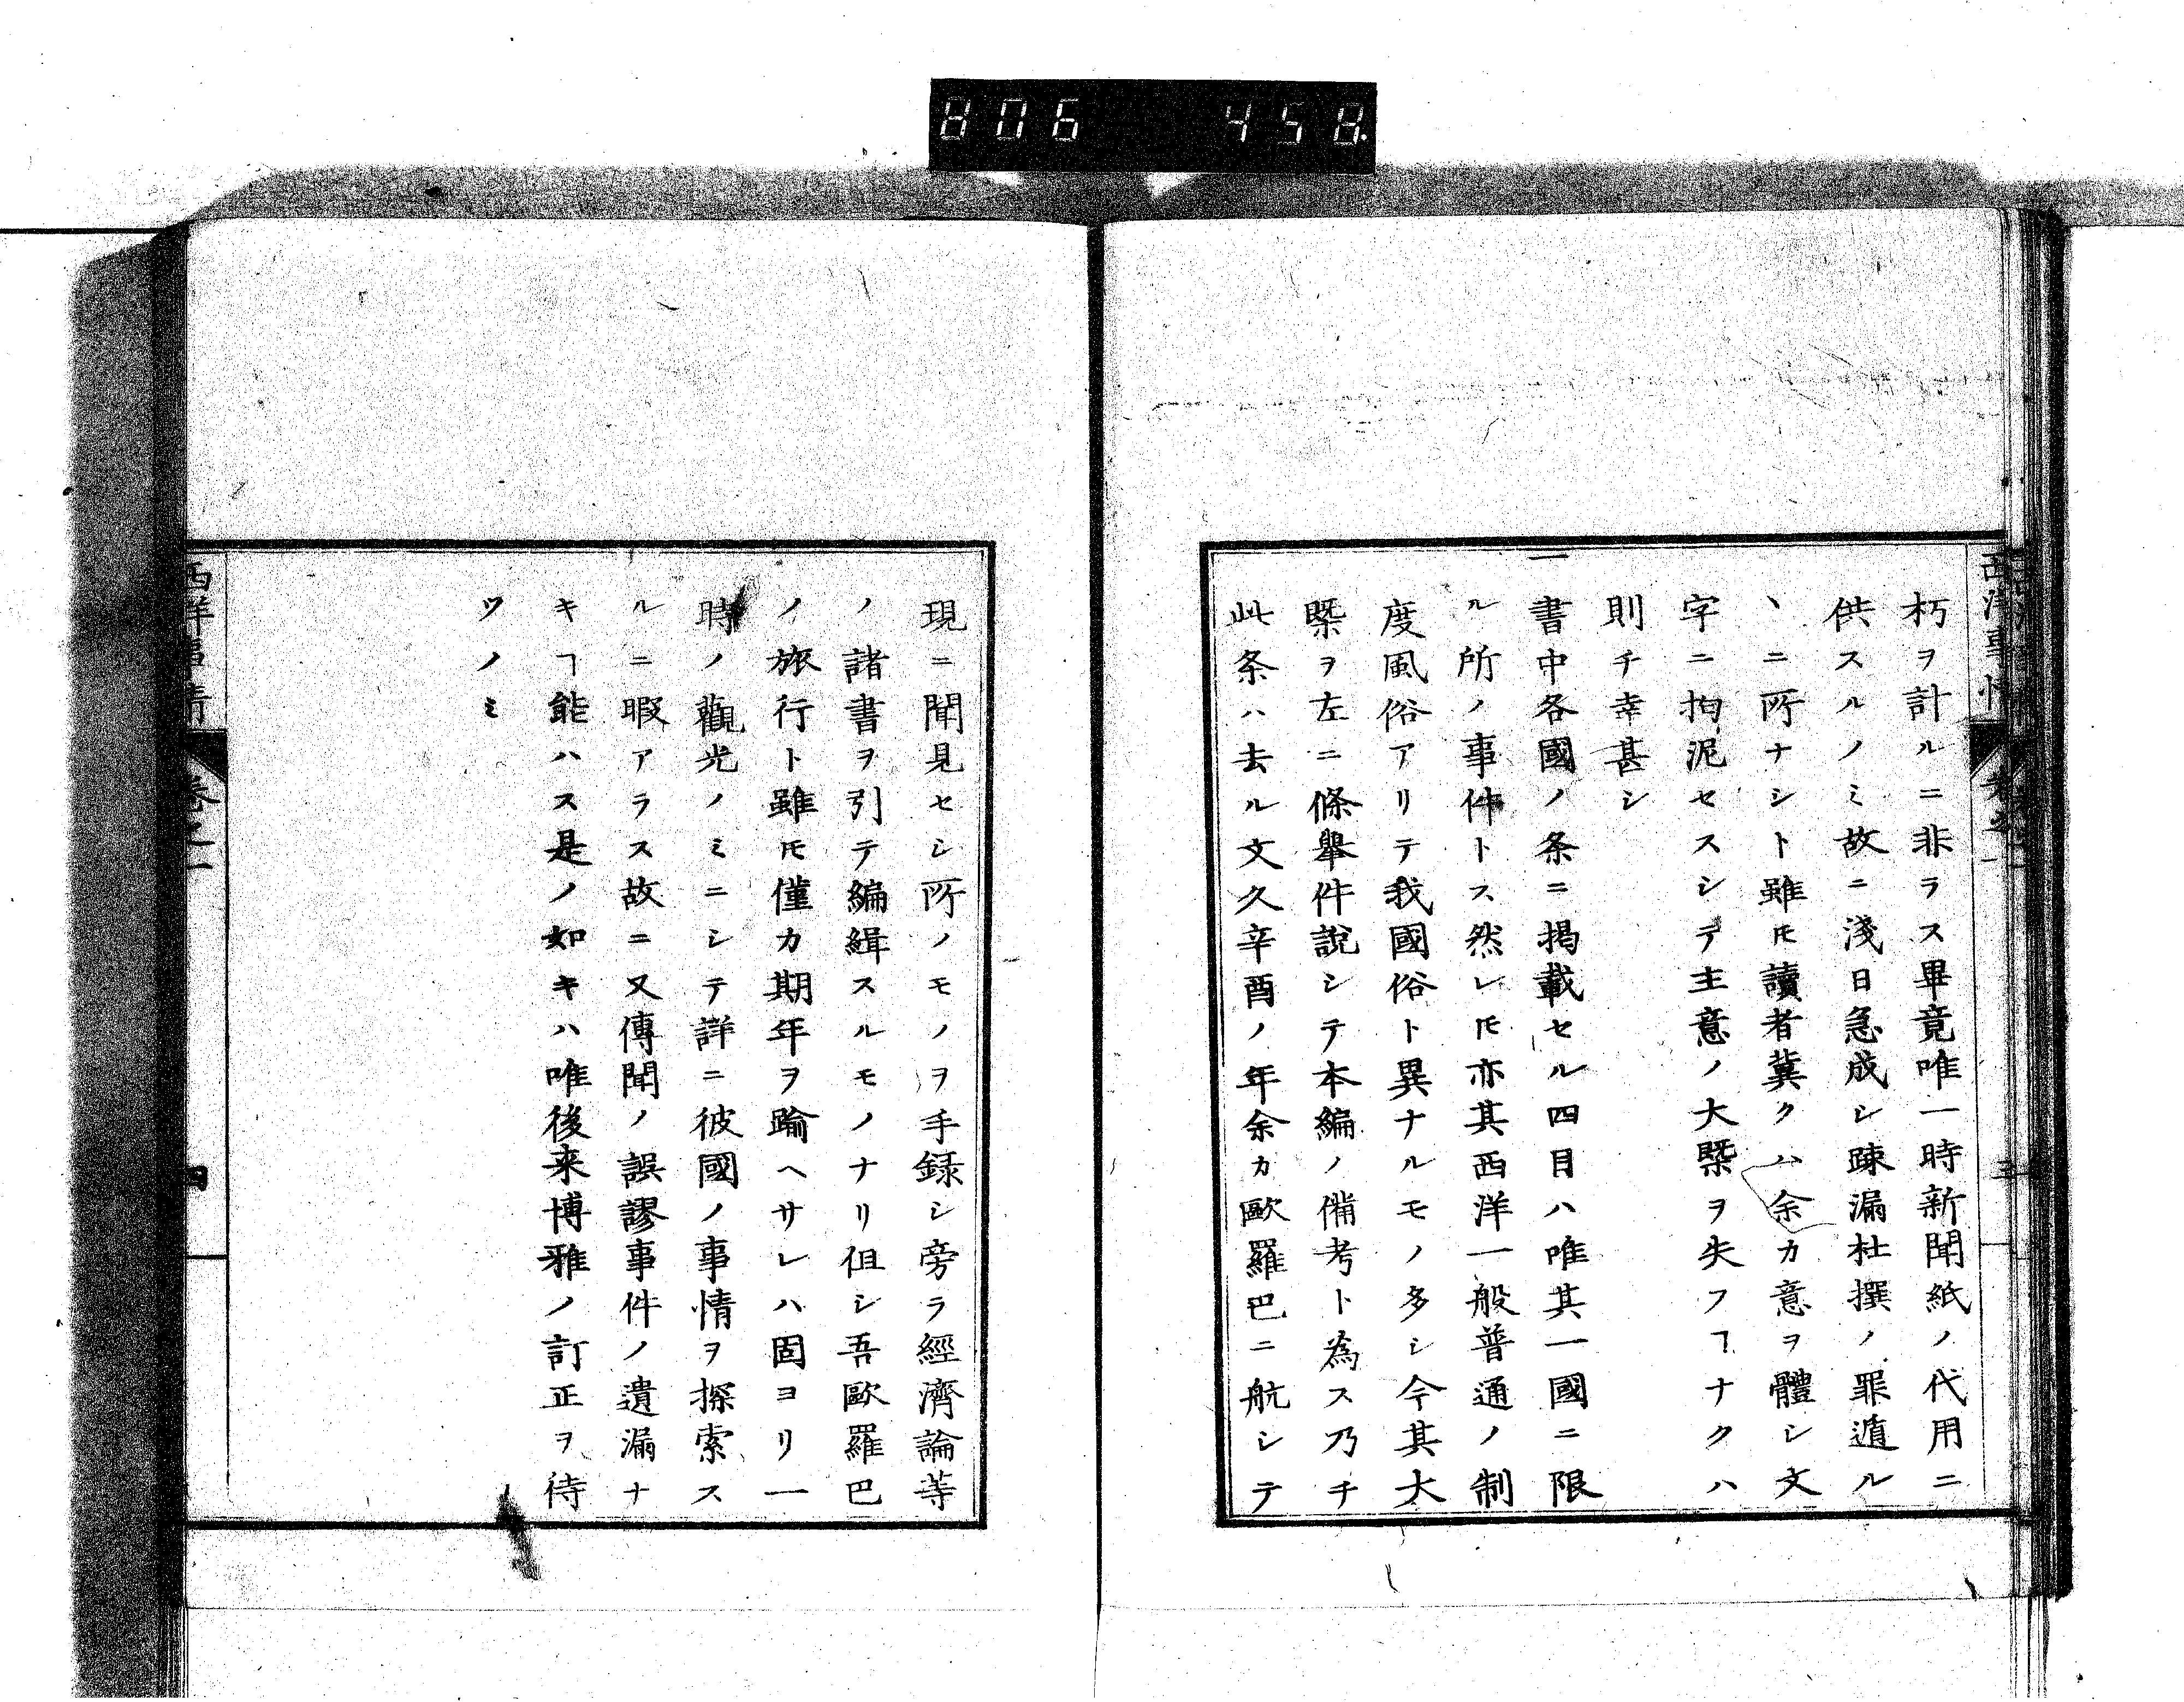 806 458
西洋事情 巻之一 三
朽ヲ計ルニ非ラス畢竟唯一時新聞紙ノ代用ニ
供スルノミ故ニ淺日急成シ疎漏杜撰ノ罪遁ル
ヽニ所ナシト雖𪜈讀者冀クハ余カ意ヲ體シ文
字ニ拘泥セスシテ主意ノ大槩ヲ失フヿナクハ
則チ幸甚シ
一書中各國ノ条ニ掲載セル四目ハ唯其一國ニ限
ル所ノ事件トス然レ𪜈亦其西洋一般普通ノ制
度風俗アリテ我國俗ト異ナルモノ多シ今其大
槩ヲ左ニ條舉件說シテ本編ノ備考ト為ス乃チ
此条ハ去ル文久辛酉ノ年余カ歐羅巴ニ航シテ
現ニ聞見セシ所ノモノヲ手録シ旁ラ經濟論等
ノ諸書ヲ引テ編緝スルモノナリ但シ吾歐羅巴
ノ旅行ト雖𪜈僅カ期年ヲ踰ヘサレハ固ヨリ一
時ノ觀光ノミニシテ詳ニ彼國ノ事情ヲ探索ス
ルニ暇アラス故ニ又傳聞ノ誤謬事件ノ遺漏ナ
キヿ能ハス是ノ如キハ唯後来博雅ノ訂正ヲ待
ツノミ
西洋事情 巻之一 四